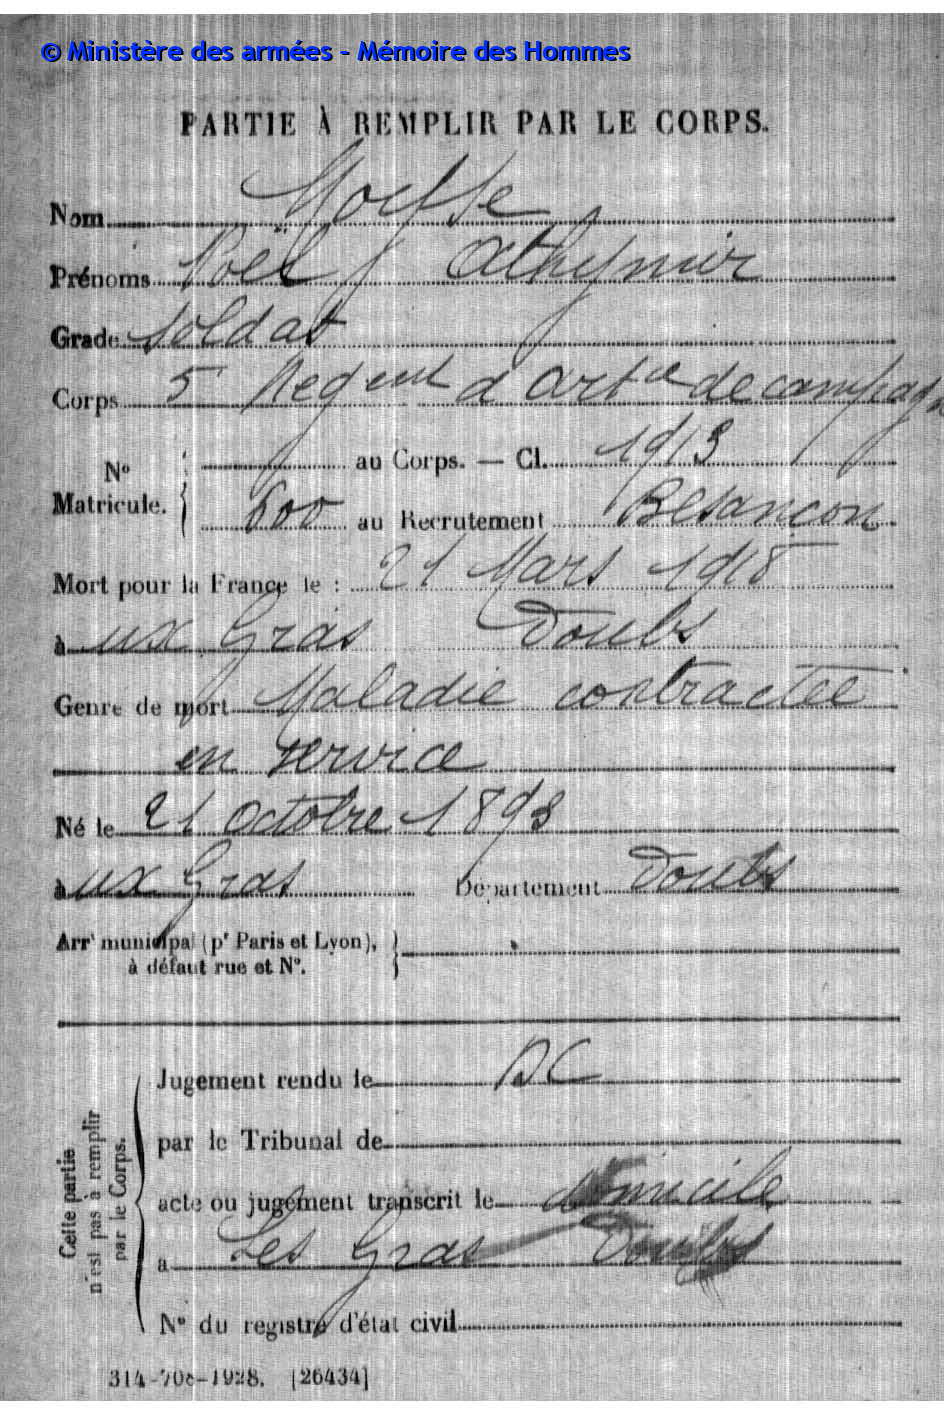 © Ministère des armées - Mémoire des Hommes
PARTIE À REMPLIR PAR LE CORPS.
Nom Moesse
Prénoms Noël Athymir
Grade Soldat
Corps 5 Regent d'Artie de campagne
No Matricule. { au Corps. — Cl. 1913
600 au Recrutement Besançon
Mort pour la France le : 21 Mars 1918
à ux Gras Doubs
Genre de mort Maladie contractée
en service
Né le 21 Octobre 1893
à ux Gras Département Doubs
Arrt municipal (pr Paris et Lyon), à défaut rue et No.
Cette partie n'est pas à remplir par le Corps.
Jugement rendu le DC
par le Tribunal de
acte ou jugement transcrit le domicile
à Les Gras Doubs
No du registre d'état civil
314-708-1928. [26434]